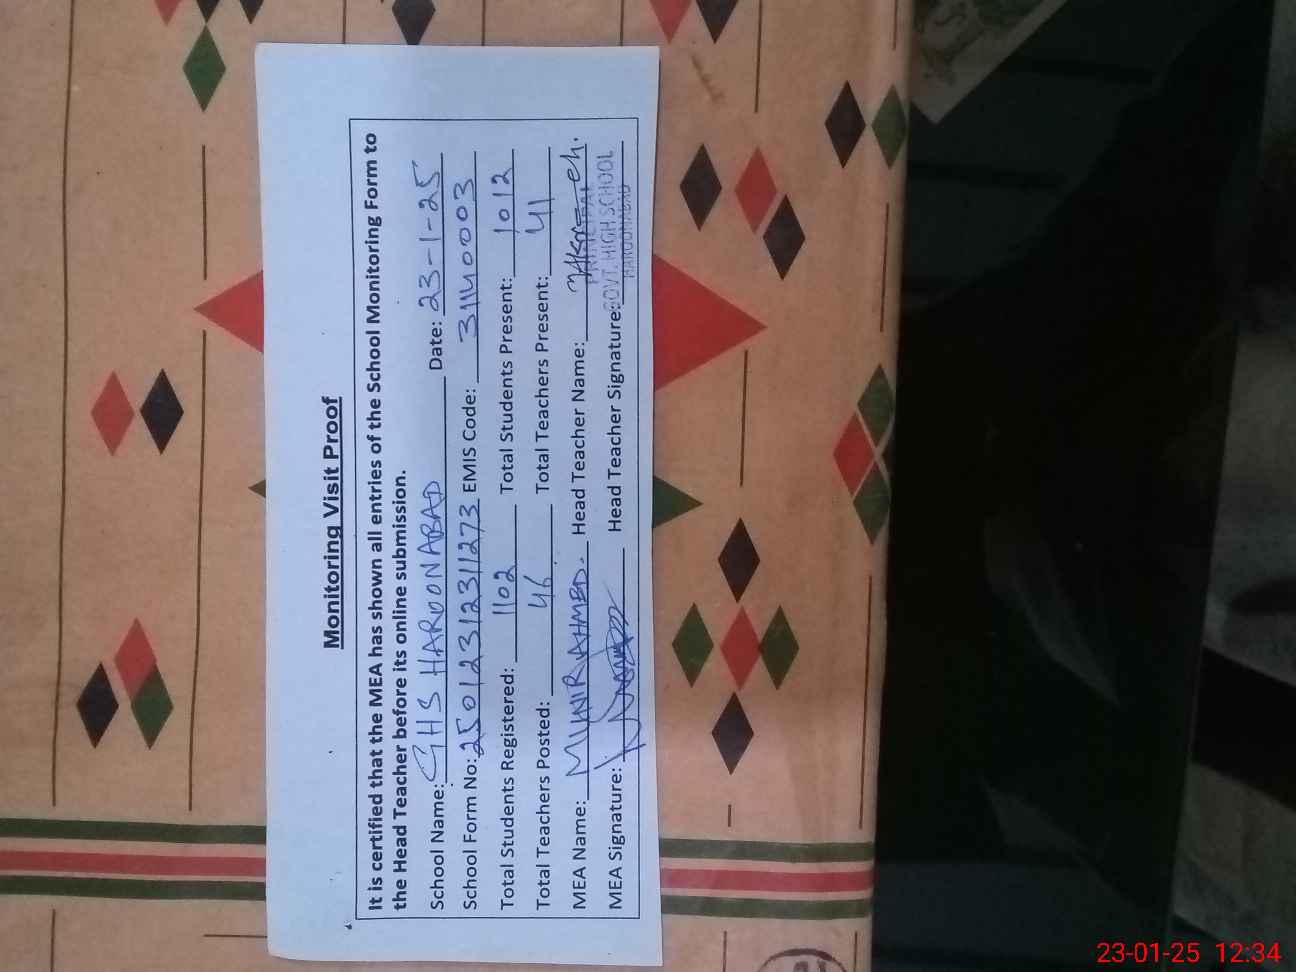 Monitoring Visit Proof
It is certified that the MEA has shown all entries of the School Monitoring Form to
the Head Teacher before its online submission.
School Name: GHS HAROONABAD Date: 23-1-25
School Form No: 25012312311273 EMIS Code: 31140003
Total Students Registered: 1102 Total Students Present: 1012
Total Teachers Posted: 46 Total Teachers Present: 41
MEA Name: MUNIR AHMED. Head Teacher Name:
MEA Signature: Head Teacher Signature:
PRINCIPAL
GOVT. HIGH SCHOOL
HAROONABAD
23-01-25 12:34